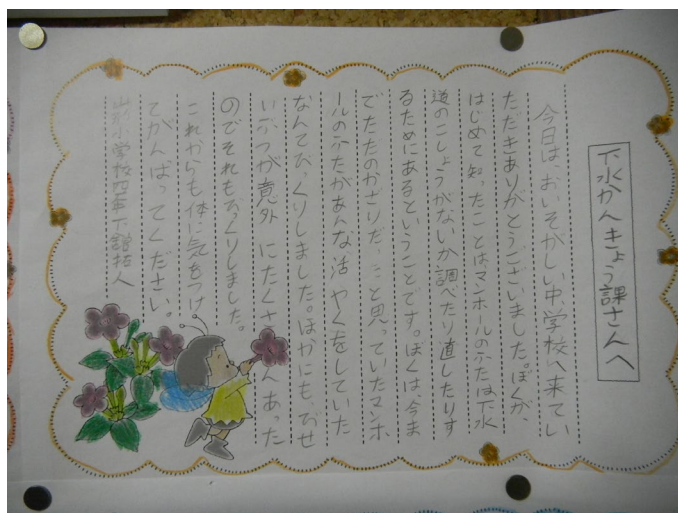 下水かんきょう課さんへ
今日は、おいそがしい中、学校へ来てい
ただきありがとうございました。ぼくが、
はじめて知ったことはマンホールのふたは下水
道のこしょうがないか調べたり直したりす
るためにあるということです。ぼくは、今ま
でたたのかざりだっこと思っていたマンホ
ールのふたがあんな活やくをしていた
なんてびっくりしました。ほかにも、びせ
いぶつが意外にたくさんあった
のでそれもびっくりしました。
これからも体に気をつけ
てがんばってください。
小学校四年